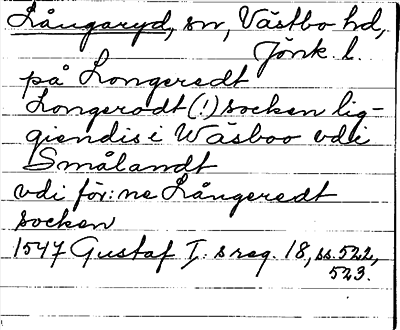 Långaryd, sn, Västbo hd,
Jönk. l.
på Longeredt
Longerodt (!) socken lig-
giendis i Wäsboo vdi
Smålandt
vdi för:ne Långeredt
socken
1547 Gustaf I:s reg. 18, ss. 522,
523.